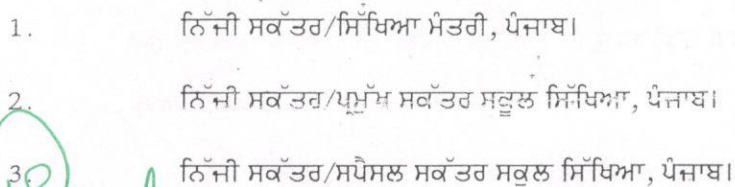 1. ਨਿੱਜੀ ਸਕੱਤਰ/ਸਿੱਖਿਆ ਮੰਤਰੀ, ਪੰਜਾਬ।
2. ਨਿੱਜੀ ਸਕੱਤਰ/ਪ੍ਰਮੁੱਖ ਸਕੱਤਰ ਸਕੂਲ ਸਿੱਖਿਆ, ਪੰਜਾਬ।
3. ਨਿੱਜੀ ਸਕੱਤਰ/ਸਪੈਸਲ ਸਕੱਤਰ ਸਕੂਲ ਸਿੱਖਿਆ, ਪੰਜਾਬ।